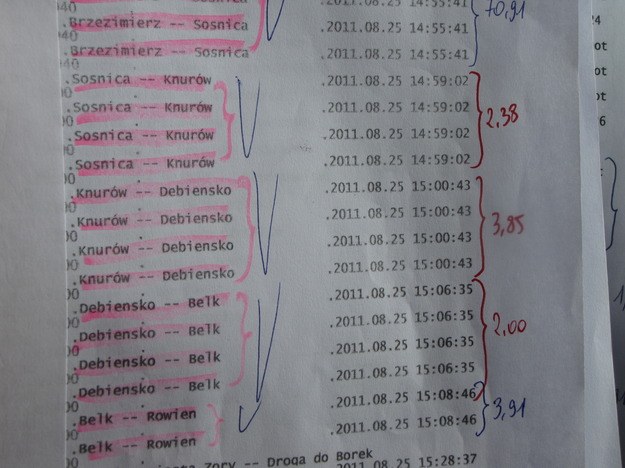 40 .2011.08.25 14:55:41 70,91
.Brzezimierz -- Sosnica .2011.08.25 14:55:41
40
.Brzezimierz -- Sosnica .2011.08.25 14:55:41
40
.Sosnica -- Knurów .2011.08.25 14:59:02
00
.Sosnica -- Knurów .2011.08.25 14:59:02 2,38
00
.Sosnica -- Knurów .2011.08.25 14:59:02
00
.Sosnica -- Knurów .2011.08.25 14:59:02
00
.Knurów -- Debiensko .2011.08.25 15:00:43
00
.Knurów -- Debiensko .2011.08.25 15:00:43 3,85
00
.Knurów -- Debiensko .2011.08.25 15:00:43
00
.Knurów -- Debiensko .2011.08.25 15:00:43
00
.Debiensko -- Belk .2011.08.25 15:06:35
00
.Debiensko -- Belk .2011.08.25 15:06:35 2,00
00
.Debiensko -- Belk .2011.08.25 15:06:35
00
.Debiensko -- Belk .2011.08.25 15:06:35
00
.Belk -- Rowien .2011.08.25 15:08:46 3,91
00
.Belk -- Rowien .2011.08.25 15:08:46
00
Zory -- Droga do Borek
2011.08.25 15:28:37
ot
ot
ot
6